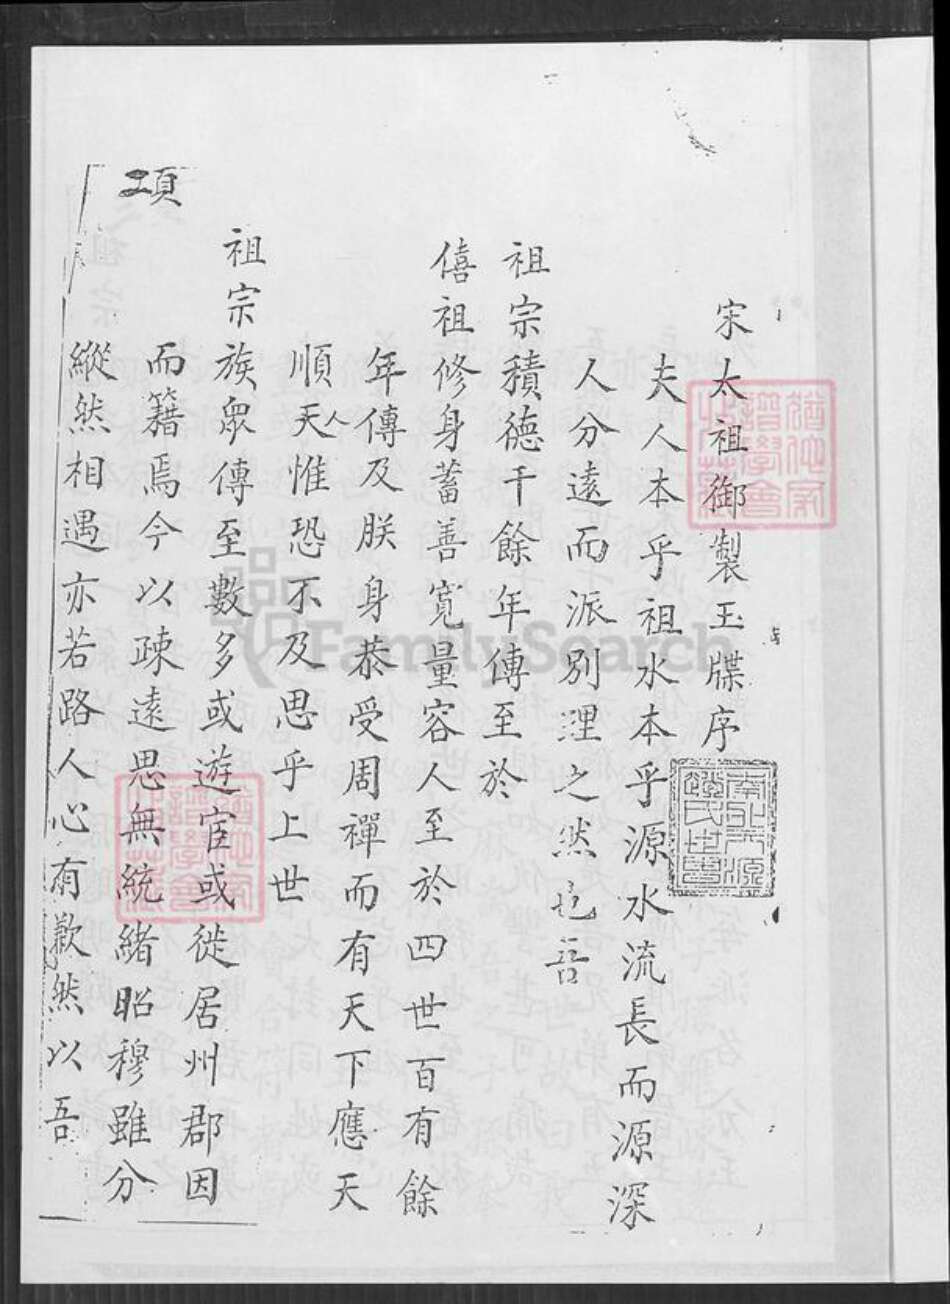 宋太祖御製玉牒序
夫人本乎祖水本乎源水流長而源深
人分遠而派別理之然也吾
祖宗積德千餘年傳至於
僖祖修身蓄善寬量容人至於四世百有餘
年傳及朕身恭受周禪而有天下應天
順天人惟恐不及思乎上世
祖宗族眾傳至數多或遊宦或徙居州郡因
而籍焉今以疎遠思無統緒昭穆雖分
縱然相遇亦若路人心有歉然以吾
項
FamilySearch